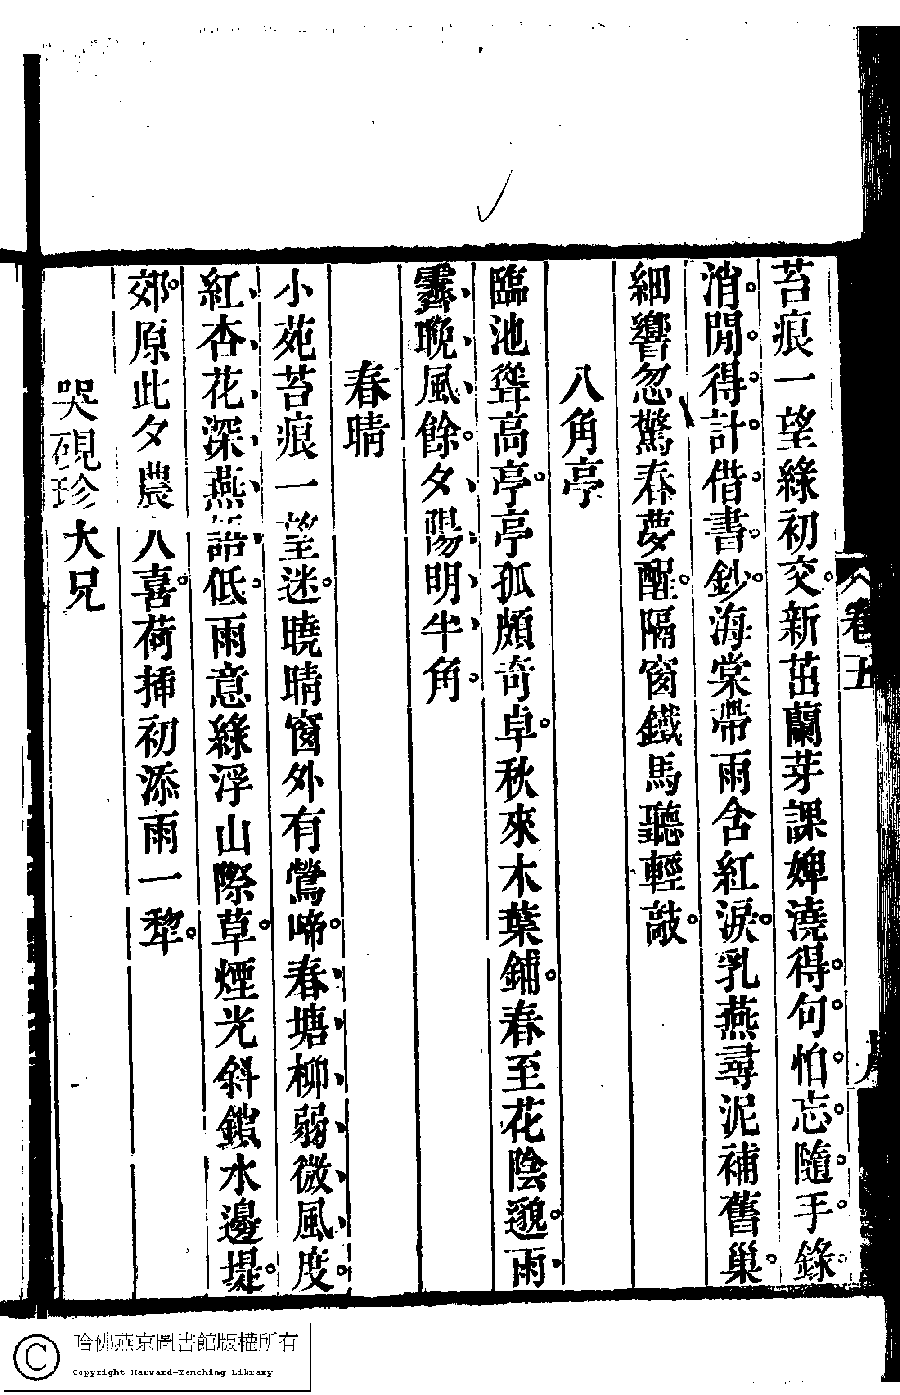 苔痕一望綠初交新茁蘭芽課婢澆得句怕忘隨手錄
消閒得計借書鈔海棠帶雨含紅淚乳燕尋泥補舊巢
細響忽驚春夢醒隔窗鐵馬聽輕敲
八角亭
臨池聳高亭亭孤頗奇卓秋來木葉鋪春至花陰邈雨
霽晚風餘夕陽明半角
春晴
小苑苔痕一望迷曉晴窗外有鶯啼春塘柳弱微風度
紅杏花深燕語低雨意綠浮山際草煙光斜鎖水邊堤
郊原此夕農人喜荷插初添雨一犂
哭硯珍大兄
卷五
哈佛燕京圖書館版權所有
Copyright Harvard-Yenching Library